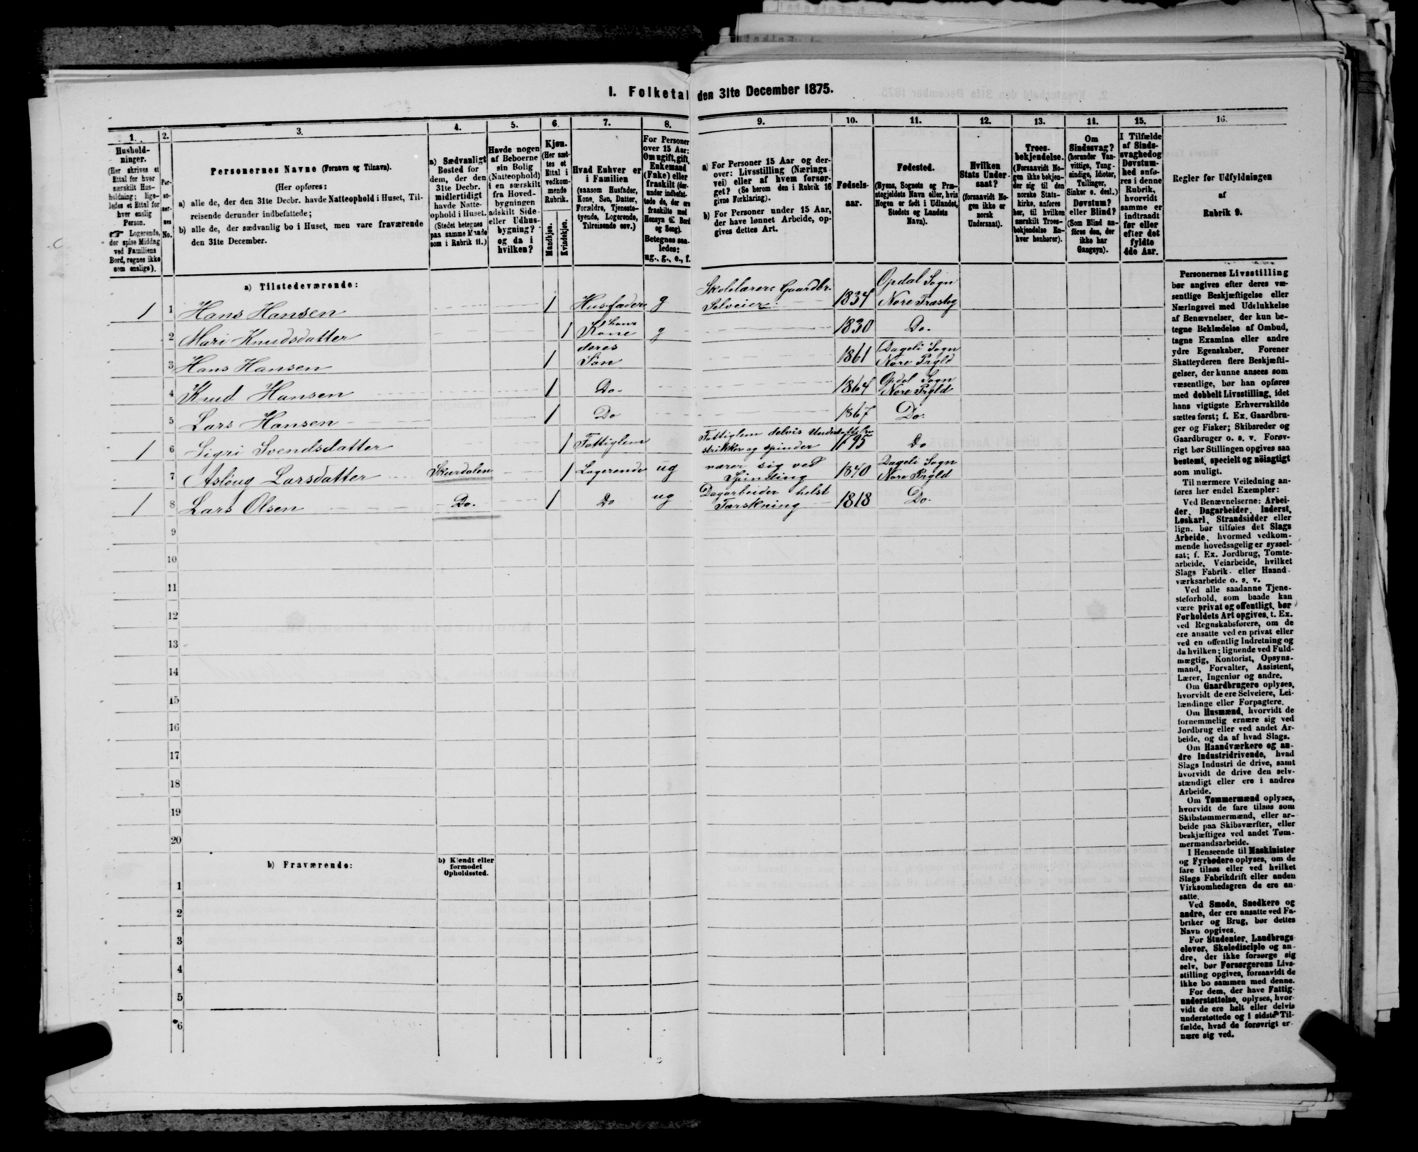 I. Folketal den 31te December 1875.
1.
Husholdninger.
(Her skrives et Ettal for hver særskilt Husholdning; ligeledes et Ettal for hver enslig Person.
☞ Logerende, der spise Middag ved Familiens Bord, regnes ikke som enslige).
2.
Personernes No.
3.
Personernes Navne (Fornavn og Tilnavn).
(Her opføres:
a) alle de, der den 31te Decbr. havde Natteophold i Huset, Tilreisende derunder indbefattede;
b) alle de, der sædvanlig bo i Huset, men vare fraværende den 31te December.
4.
a) Sædvanligt Bosted for dem, der den 31te Decbr. midlertidigt havde Natteophold i Huset.
(Stedet betegnes paa samme Maade som i Rubrik 11.)
5.
Havde nogen af Beboerne sin Bolig (Natteophold) i en særskilt fra Hovedbygningen adskilt Side- eller Udhusbygning? og da i hvilken?
6.
Kjøn.
(Her sættes et Ettal i vedkommende Rubrik.
Mandkjøn.
Kvindekjøn.
7.
Hvad Enhver er i Familien
(saasom Husfader, Kone, Søn, Datter, Forældre, Tjenestetyende, Logerende, Tilreisende osv.)
8.
For Personer over 15 Aar: Om ugift, gift, Enkemand (Enke) eller fraskilt
Betegnes saaledes: ug., g., e., f.
9.
a) For Personer 15 Aar og derover: Livsstilling (Næringsvei) eller af hvem forsørget? (Se herom den i Rubrik 16 givne Forklaring).
b) For Personer under 15 Aar, der have lønnet Arbeide, opgives dettes Art.
10.
Fødselsaar.
11.
Fødested.
(Byens, Sognets og Præstegjeldets Navn eller, hvis Nogen er født i Udlandet, Stedets og Landets Navn).
12.
Hvilken Stats Undersaat?
(forsaavidt Nogen ikke er norsk Undersaat).
13.
Troesbekjendelse.
(Forsaavidt Nogen ikke bekjender sig til den norske Statskirke, anføres her, til hvilken særskilt Troesbekjendelse Enhver henhører).
14.
Om Sindssvag? (herunder Vanvittige, Tungsindige, Idioter, Tullinger, Sinker o. desl.) Døvstum? eller Blind?
(Som Blind anføres den, der ikke har Gangsyn).
15.
I Tilfælde af Sindssvaghed og Døvstumhed anføres i denne Rubrik, hvorvidt samme er indtraadt før eller efter det fyldte 4de Aar.
16.
Regler for Udfyldningen
af
Rubrik 9.
a) Tilstedeværende:
1 1 Hans Hansen 1 Husfader g Skolelærer Gaardbr. Selveier 1834 Opdal Sogn Nore Præstg
2 Mari Knudsdatter 1 hans Kone g 1830 Do.
3 Hans Hansen 1 deres Søn 1861 Dagali Sogn Nore Prgld
4 Knud Hansen 1 Do. 1864 Opdal Sogn Nore Prgld
5 Lars Hansen 1 Do 1867 Do.
1 6 Sigri Svendsdatter 1 Fattiglem Fattiglem delvis strikker og spinder 1795 Do
7 Aslöug Larsdatter Skurdalen 1 Logerende ug nærer sig ved Spinding 1840 Dagali Sogn Nore Prgld
1 8 Lars Olsen Do. 1 Do ug Dagarbeider helst Tærskning 1818 Do.
9
10
11
12
13
14
15
16
17
18
19
20
b) Fraværende:
b) Kjendt eller formodet Opholdssted.
1
2
3
4
5
6
Personernes Livsstilling
bør angives efter deres væ-
sentlige Beskjæftigelse eller
Næringsvei med Udelukkelse
af Benævnelser, der kun be-
tegne Beklædelse af Ombud,
tagne Examina eller andre
ydre Egenskaber. Forener
Skatteyderen flere Beskjæfti-
gelser, der kunne ansees som
væsentlige, bør han opføres
med dobbelt Livsstilling, idet
hans vigtigste Erhvervskilde
sættes først; f. Ex. Gaardbru-
ger og Fisker; Skibsreder og
Gaardbruger o. s. v. Forøv-
rigt bør Stillingen opgives saa
bestemt, specielt og nøiagtigt
som muligt.
Til nærmere Veiledning an-
føres her endel Exempler:
Ved Benævnelserne: Arbei-
der, Dagarbeider, Inderst,
Løskarl, Strandsidder eller
lign. bør tilføies det Slags
Arbeide, hvormed vedkom-
mende hovedsagelig er syssel-
sat; f. Ex. Jordbrug, Tomte-
arbeide, Veiarbeide, hvilket
Slags Fabrik- eller Haand-
værksarbeide o. s. v.
Ved alle saadanne Tjene-
steforhold, som baade kan
være privat og offentligt, bør
Forholdets Art opgives, t. Ex.
ved Regnskabsførere, om de
ere ansatte ved en privat eller
ved en offentlig Indretning og
da hvilken; lignende ved Fuld-
mægtig, Kontorist, Opsyns-
mand, Forvalter, Assistent,
Lærer, Ingeniør og andre.
Om Gaardbrugere oplyses,
hvorvidt de ere Selveiere, Lei-
lændinge eller Forpagtere.
Om Husmænd, hvorvidt de
fornemmelig ernære sig ved
Jordbrug eller ved andet Ar-
beide, og da af hvad Slags.
Om Haandværkere og an-
dre Industridrivende, hvad
Slags Industri de drive, samt
hvorvidt de drive den selv-
stændigt eller ere i andres
Arbeide.
Om Tømmermænd oplyses,
hvorvidt de fare tilsøs som
Skibstømmermænd, eller ar-
beide paa Skibsværfter, eller
beskjæftiges ved andet Tøm-
mermandsarbeide.
I Henseende til Maskinister
og Fyrbødere oplyses, om de
fare tilsøs eller ved hvilket
Slags Fabrikdrift eller anden
Virksomhedsgren de ere an-
satte.
Ved Smede, Snedkere og
andre, der ere ansatte ved Fa-
briker og Brug, bør dettes
Navn opgives.
For Studenter, Landbrugs-
elever, Skoledisciple og an-
dre, der ikke forsørge sig
selv, bør Forsørgerens Livs-
stilling opgives, forsaavidt de
ikke bo sammen med denne.
For dem, der have Fattig-
understøttelse, oplyses, hvor-
vidt de ere helt eller delvis
understøttede og i sidste Til-
fælde, hvad de forøvrigt er-
nære sig ved.